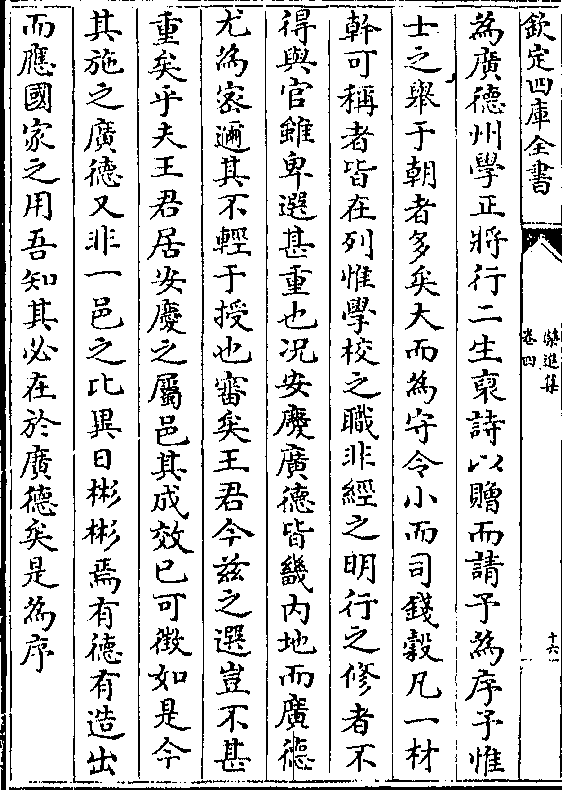 欽定四庫全書
卷四
十六
為廣德州學正將行二生裒詩以贈而請予為序予惟
士之舉于朝者多矣大而為守令小而司錢穀凡一材
幹可稱者皆在列惟學校之職非經之明行之修者不
得與官雖卑選甚重也况安慶廣德皆畿内地而廣德
尤為密邇其不輕于授也審矣王君今兹之選豈不甚
重矣乎夫王君居安慶之屬邑其成效已可徵如是今
其施之廣德又非一邑之比異日彬彬焉有德有造出
而應國家之用吾知其必在於廣德矣是為序